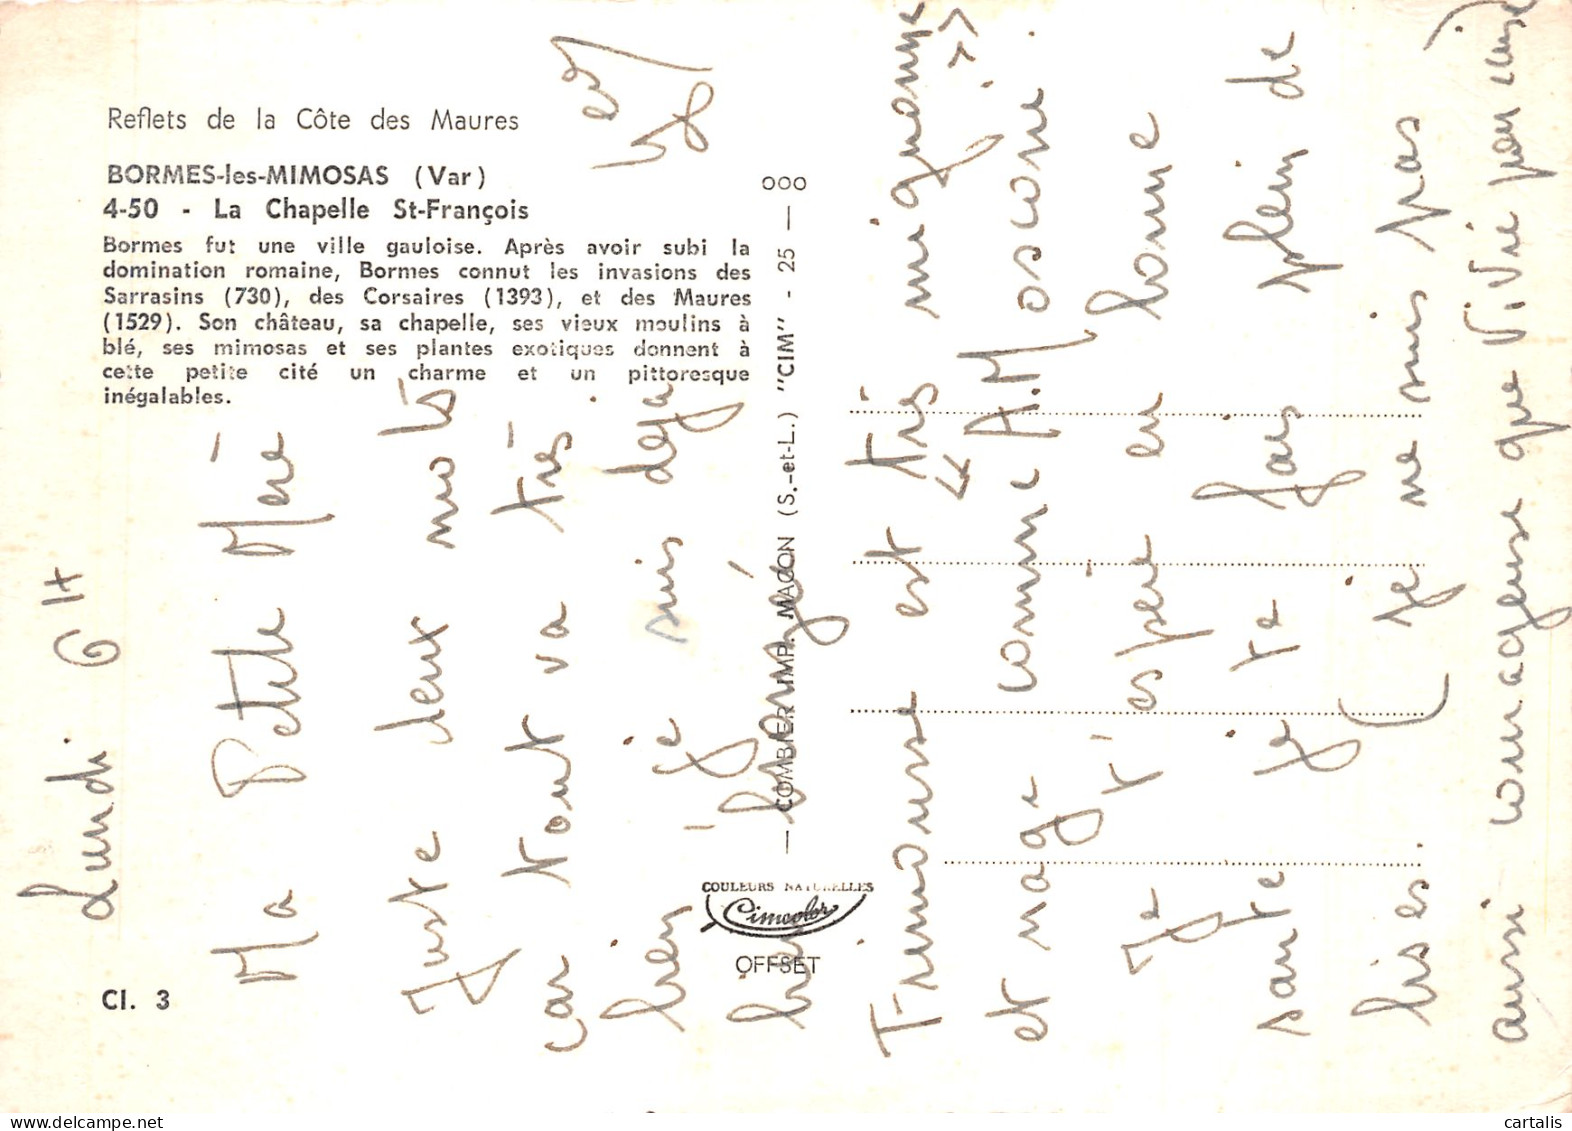 Reflets de la Côte des Maures
BORMES-les-MIMOSAS (Var)
4-50 - La Chapelle St-François
Bormes fut une ville gauloise. Après avoir subi la
domination romaine, Bormes connut les invasions des
Sarrasins (730), des Corsaires (1393), et des Maures
(1529). Son château, sa chapelle, ses vieux moulins à
blé, ses mimosas et ses plantes exotiques donnent à
cette petite cité un charme et un pittoresque
inégalables.
Cl. 3
COMBIER IMP. MACON (S.-et-L.) "CIM" - 25 — 000
COULEURS NATURELLES
Cimcolor
OFFSET
Lundi 6 H
Ma Petite Mère
Juste deux mots
car tout va très
bien je suis déjà
bien bronzé
Frimousse est très mignonne
et nage comme "A.M osconi."
Je t'espère en bonne
santé je te fais plein de
bises. (je ne suis pas
aussi courageuse que Vivie pour
cartalis